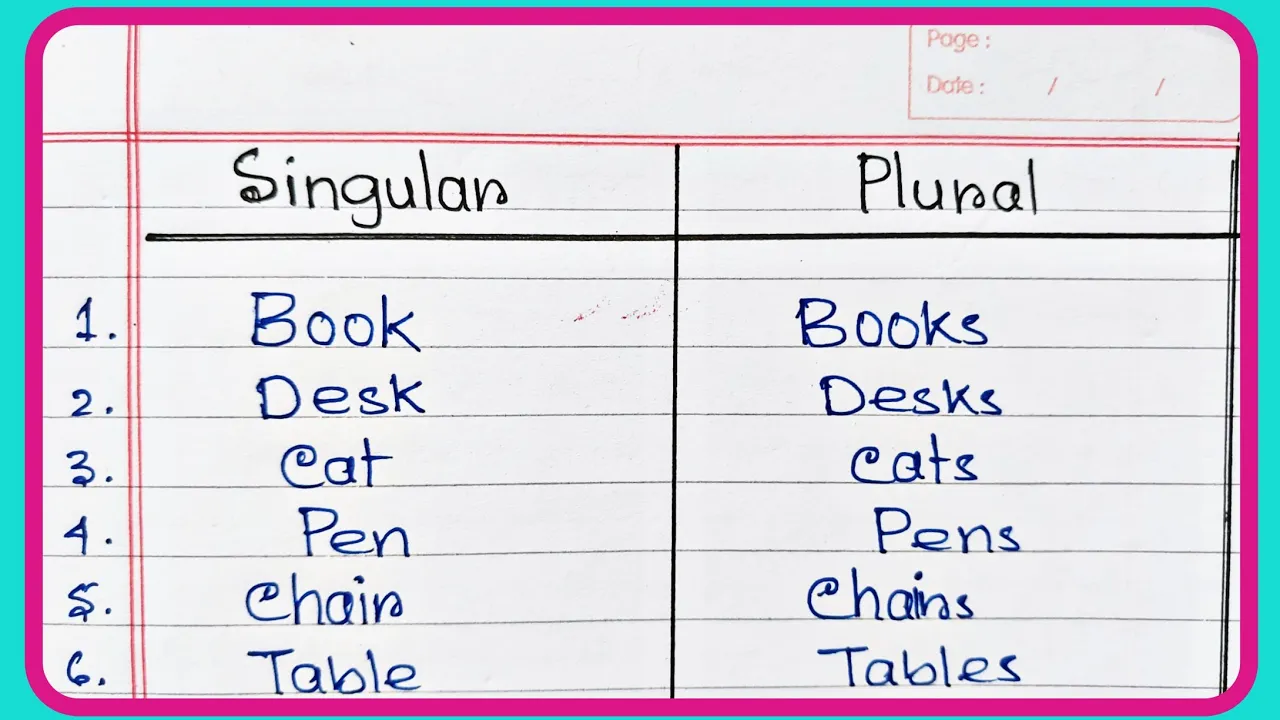 Page :
Date : / /
Singular Plural
1. Book Books
2. Desk Desks
3. Cat Cats
4. Pen Pens
5. Chair Chairs
6. Table Tables